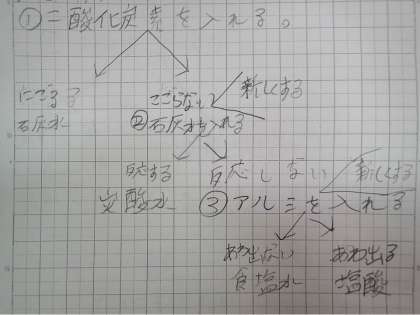 ①二酸化炭素を入れる。
にごる
石灰水
にごらない
新しくする
②石灰水を入れる
反応する
炭酸水
反応しない
新しくする
③アルミを入れる
あわ出ない
食塩水
あわ出る
塩酸